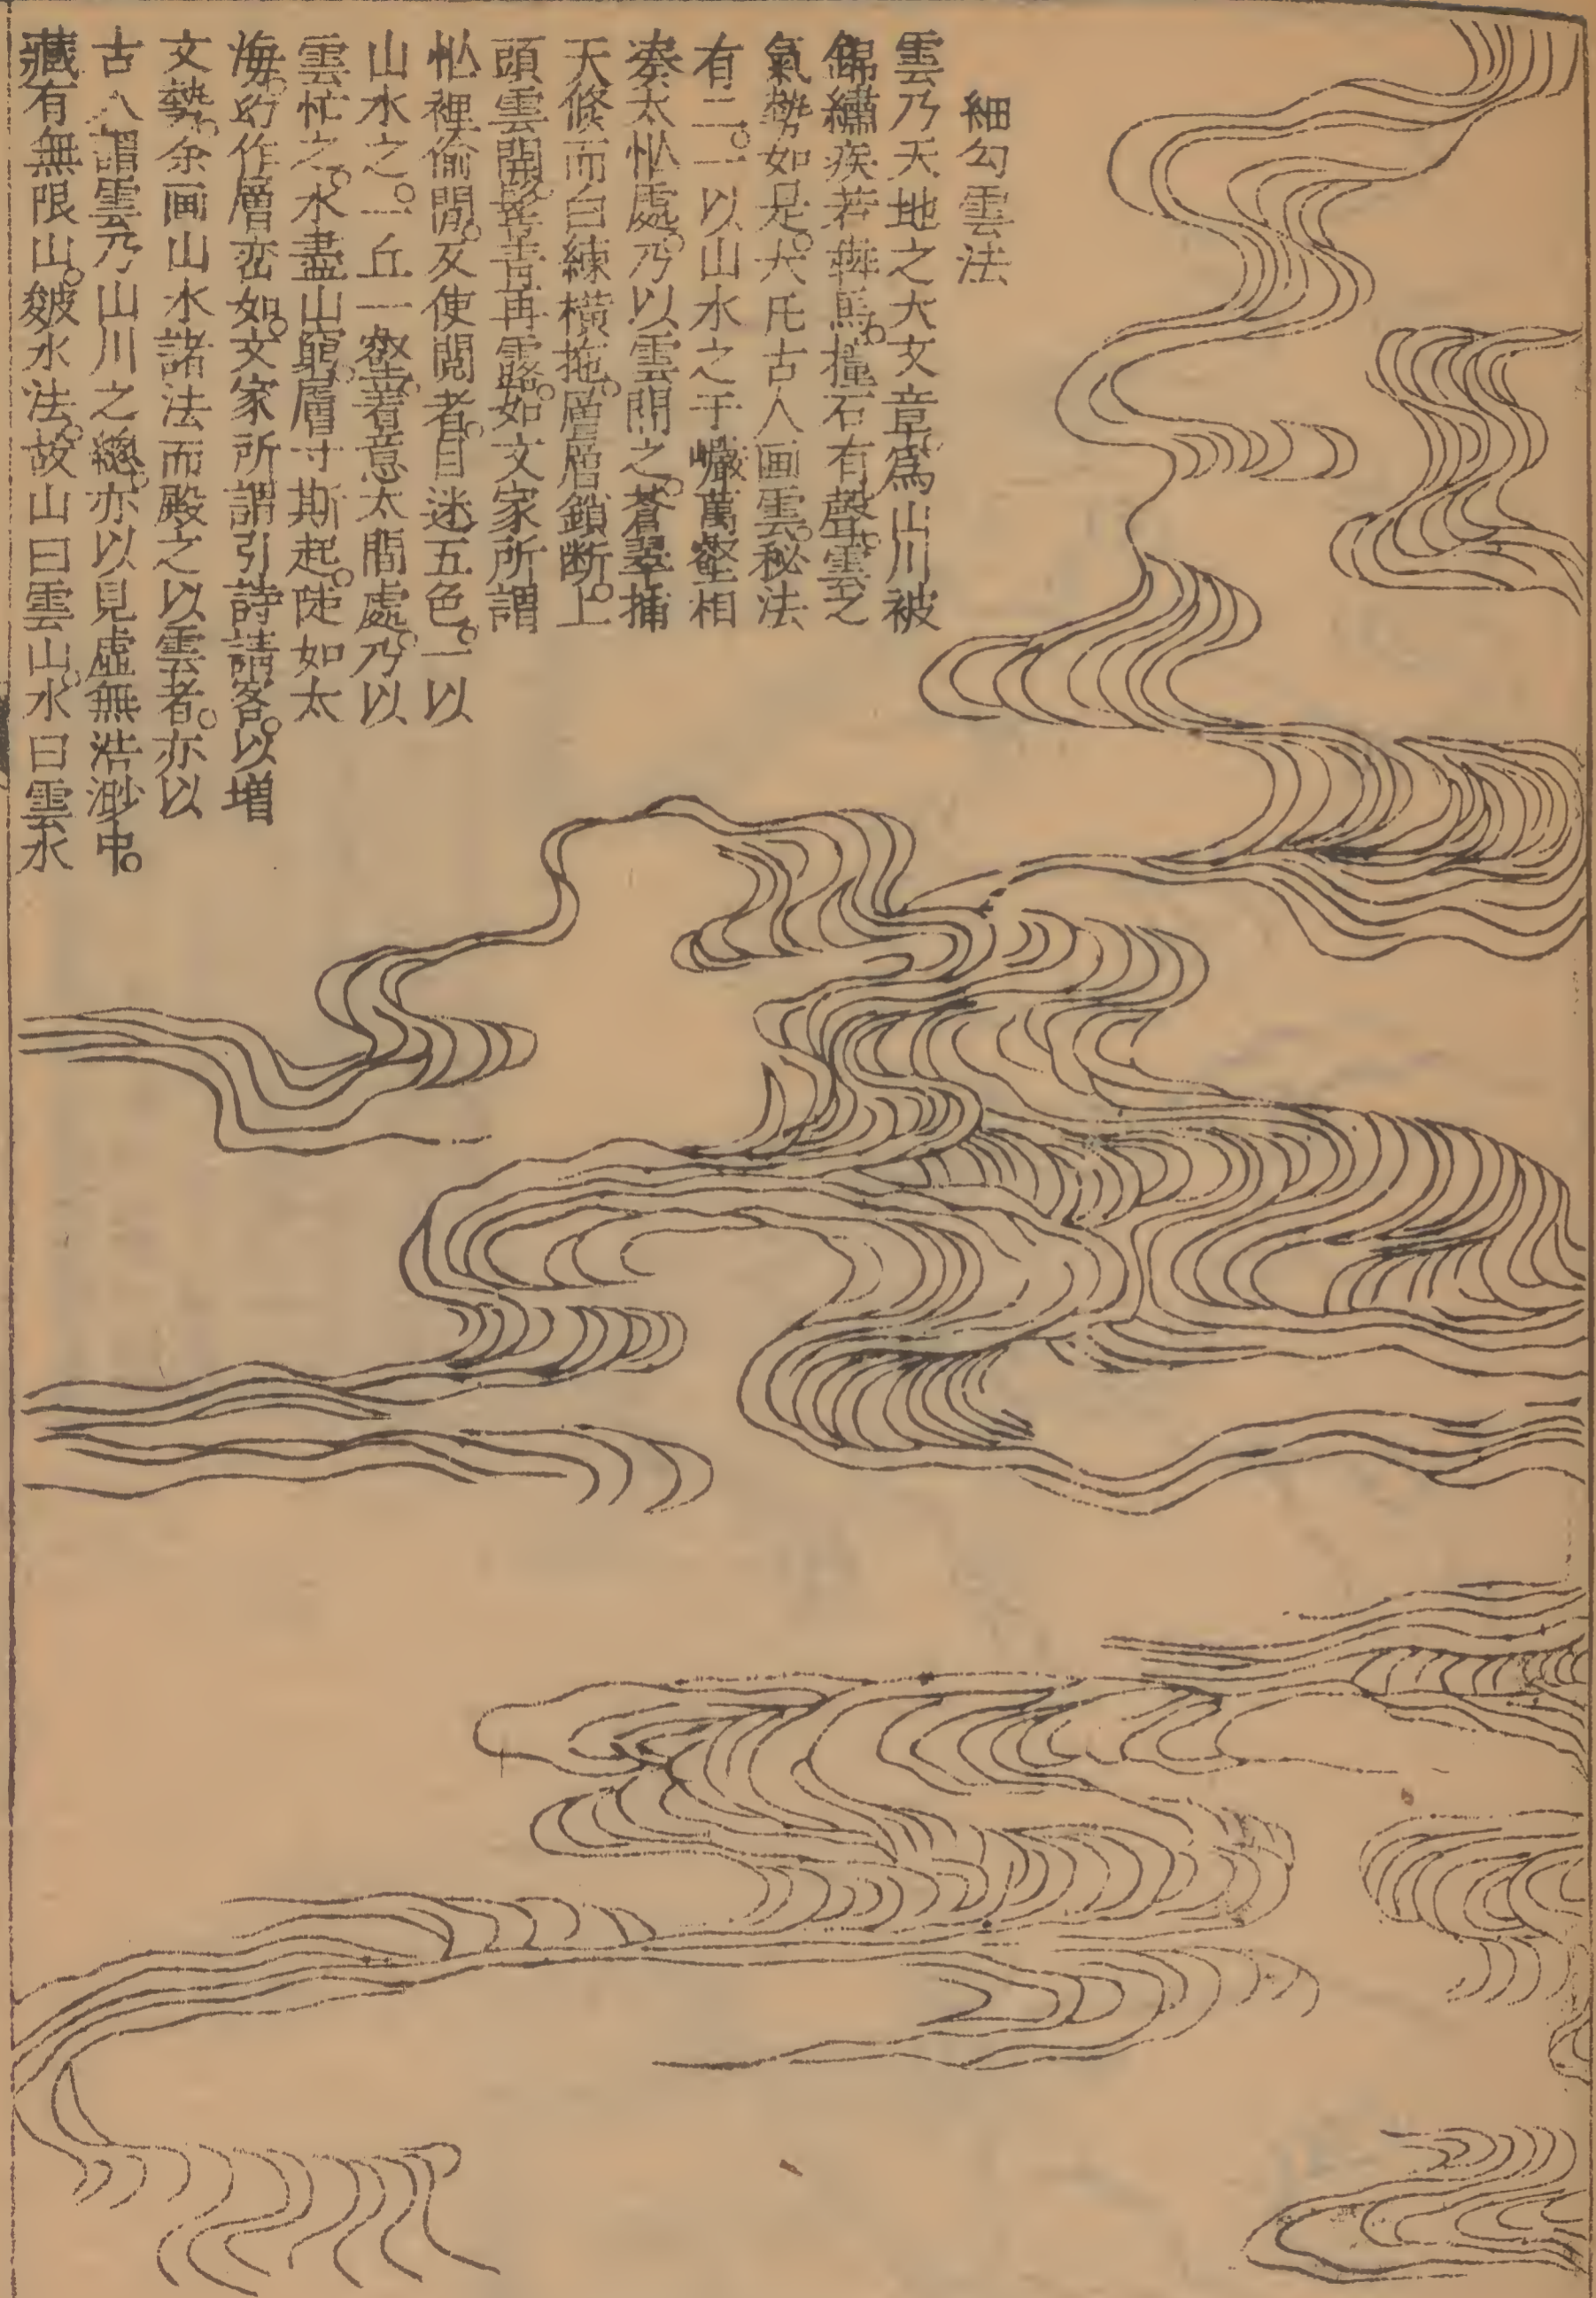 細勾雲法
雲乃天地之大文章為山川被
錦繡疾若奔馬。撞石有聲。雲之
氣勢如是。大氏古人画雲。秘法
有二。一以山水之千巖萬壑相
湊太忙處。乃以雲閒之。蒼翠插
天倐而白練橫拖。層層鎖断。上
頭雲開髻青再露。如文家所謂
忙裡偷閒。反使閲者。目迷五色。一以
山水之。一丘一壑。着意太閒處。乃以
雲忙之。水盡山窮。層寸斯起。陡如太
海。幻作層巒如。文家所謂引詩請客。以増
文勢。余画山水諸法而殿之以雲者。亦以
古人謂雲乃山川之總。亦以見虛無浩渺中。
藏有無限山。皴水法。故山曰雲山。水曰雲水